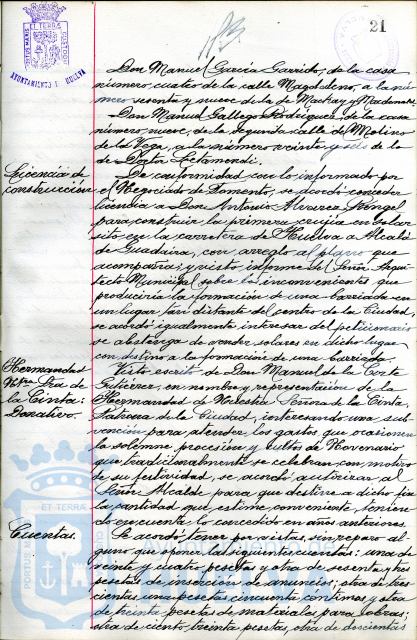 21
AYUNTAMIENTO DE HUELVA
Don Manuel García Garrido, de la casa
número cuatro de la calle Magdalena, a la nú-
mero sesenta y nueve de la de Mackay y Macdonald
Don Manuel Gallego Rodríguez, de la casa
número nueve, de la Segunda calle del Molino
de la Vega, a la número veinte y seis de la
de Doctor Letamendi.
Licencia de
construcción
De conformidad con lo informado por
el Negociado de Fomento, se acordó conceder
licencia a Don Antonio Alvarez Rangel
para construir la primera crujía en solar
sito en la carretera de Huelva a Alcalá
de Guadaira, con arreglo al plano que
acompaña; y visto informe del Señor Arqui-
tecto Municipal sobre los inconvenientes que
produciría la formación de una barriada en
un lugar tan distante del centro de la Ciudad,
se acordó igualmente interesar del peticionario
se abstenga de vender solares en dicho lugar
con destino a la formación de una barriada.
Hermandad
Ntra. Sra. de
la Cinta:
Donativo.
Visto escrito de Don Manuel de la Corte
Gutiérrez, en nombre y representación de la
Hermandad de Nuestra Señora de la Cinta,
Patrona de la Ciudad, interesando una sub-
vención para atender los gastos que ocasionen
la solemne procesión y cultos de Novenario
que tradicionalmente se celebran con motivo
de su festividad, se acordó autorizar al
Señor Alcalde para que destine a dicho fin
la cantidad que estime conveniente, tenien-
do en cuenta lo concedido en años anteriores.
Cuentas.
Se acordó tener por vistas, sin reparo al-
guno que poner, las siguientes cuentas: una de
veinte y cuatro pesetas y otra de sesenta y tres
pesetas de inserción de anuncios; otra de tres-
cientas una pesetas cincuenta céntimos y otra
de treinta pesetas de materiales para obras;
otra de ciento treinta pesetas, otra de doscientas